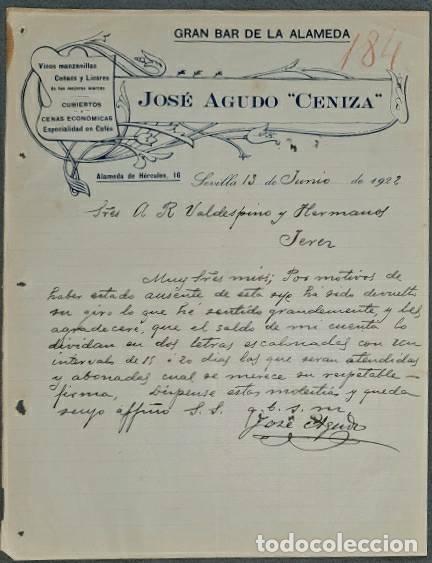 GRAN BAR DE LA ALAMEDA
184
Vinos manzanillas
Coñacs y Licores
de las mejores marcas
CUBIERTOS
Y
CENAS ECONÓMICAS
Especialidad en Cafés
JOSÉ AGUDO "CENIZA"
Alameda de Hércules, 16
Sevilla 13 de Junio de 1922
Sres A R Valdespino y Hermanos
Jerez
Muy Sres mios; Por motivos de
haber estado ausente de esta ha sido devuelto
su giro lo que he sentido grandemente, y les
agradeceré, que el saldo de mi cuenta lo
dividan en dos letras escalonadas con un
intervalo de 15 ó 20 dias las que seran atendidas
y abonadas cual se merece su respetable
firma, Dispense estas molestias y queda
suyo affmo S. S. q. b. s. m
José Agudo
todocoleccion.net